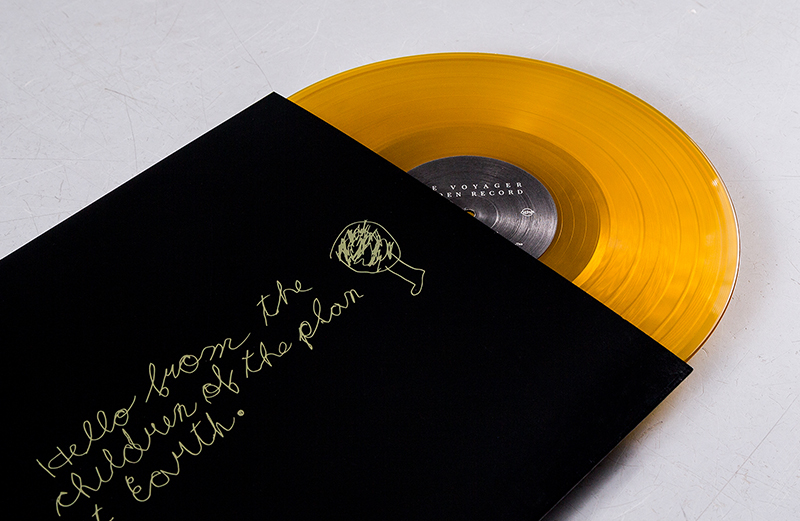 E VOYAGER
DEN RECORD
Hello from the
children of the plan
t Earth.